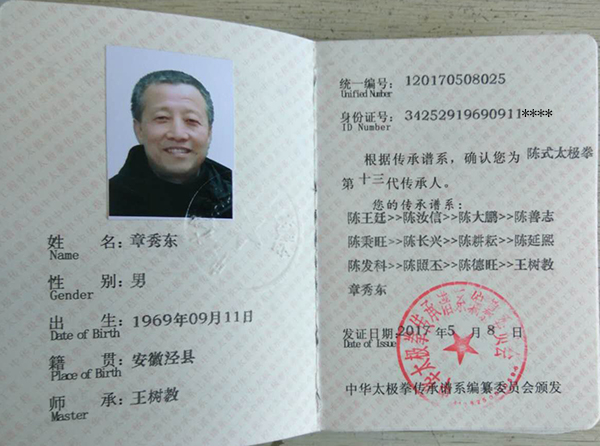 姓 名：章秀东
Name
性 别：男
Gender
出 生：1969年09月11日
Date of Birth
籍 贯：安徽泾县
Place of Birth
师 承：王树教
Master
统一编号：120170508025
Unified Number
身份证号：34252919690911****
ID Number
根据传承谱系，确认您为 陈式太极拳
第 十三代传承人。
您的传承谱系：
陈王廷>>陈汝信>>陈大鹏>>陈善志
陈秉旺>>陈长兴>>陈耕耘>>陈延熙
陈发科>>陈照丕>>陈德旺>>王树教
章秀东
发证日期：2017年5月8日
Date of Issue
中华太极拳传承谱系编纂委员会颁发